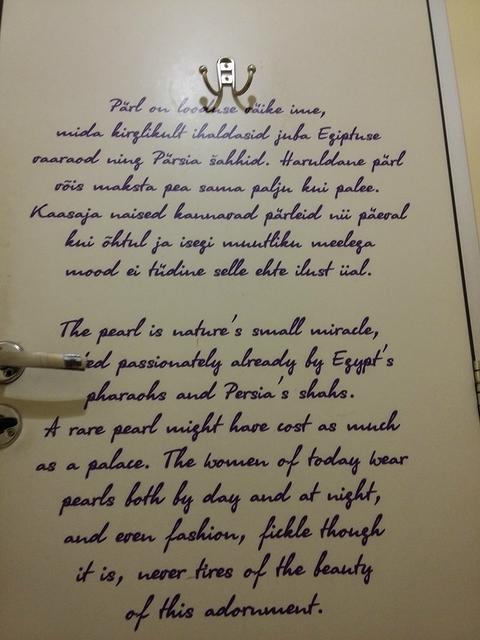 Pärl on looduse väike ime,
mida kirglikult ihaldasid juba Egiptuse
vaaraod ning Pärsia šahhid. Haruldane pärl
võis maksta pea sama palju kui palee.
Kaasaja naised kannavad pärleid nii päeval
kui õhtul ja isegi muutliku meelega
mood ei tüdine selle ehte ilust iial.
The pearl is nature's small miracle,
passionately already by Egypt's
pharaohs and Persia's shahs.
A rare pearl might have cost as much
as a palace. The women of today wear
pearls both by day and at night,
and even fashion, fickle though
it is, never tires of the beauty
of this adornment.